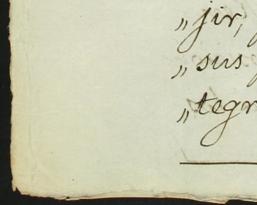 „jir,
„sus
„tegr